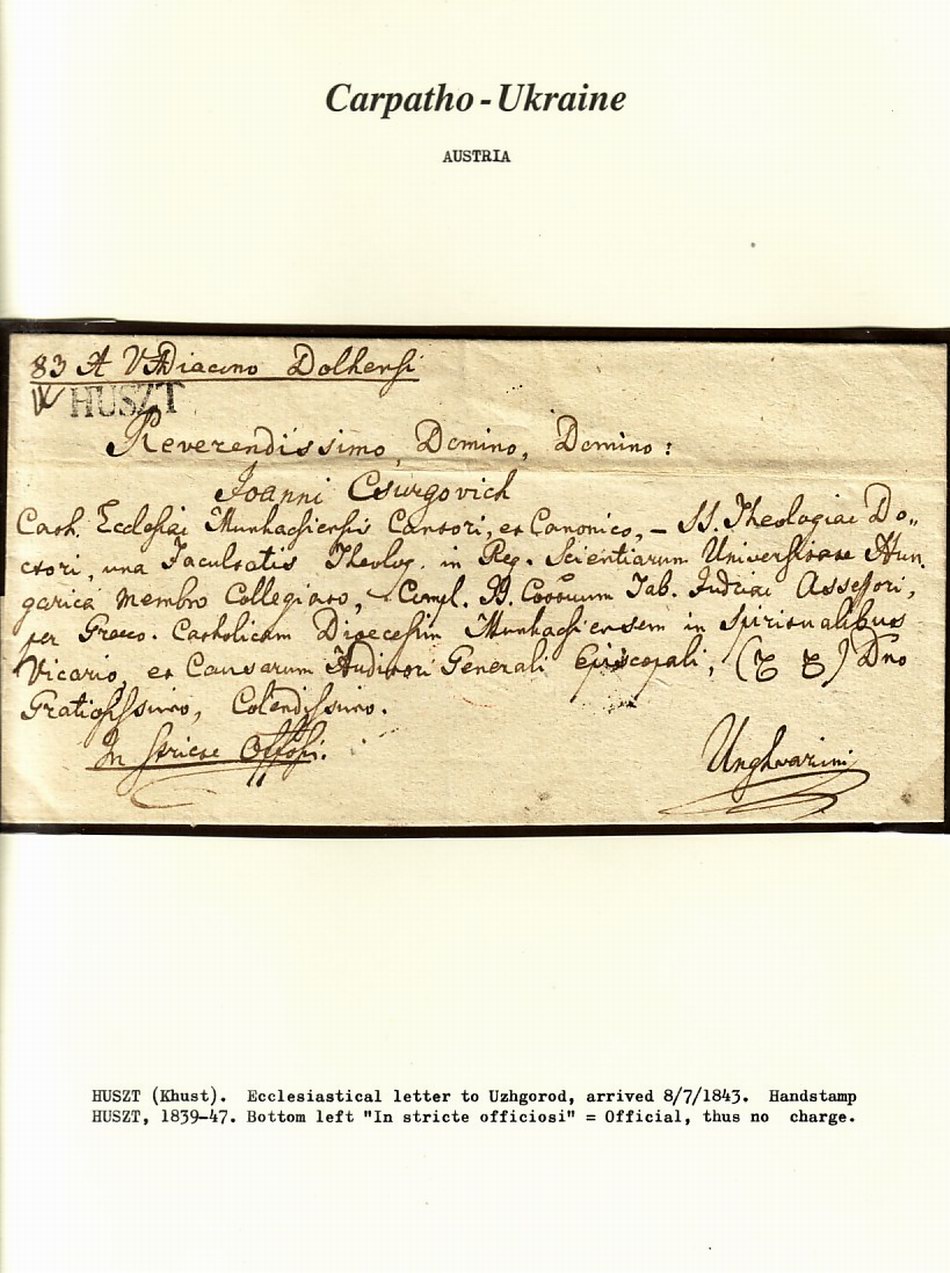 Carpatho-Ukraine
AUSTRIA
83 A VADiacono Dolhensi
HUSZT
Reverendissimo, Domino, Domino:
Joanni Csurgovich
Cath. Ecclesiae Munkacsiensis Cantori, et Canonico, – SS. Theologiae Do„
ctori, una Facultatis Theolog. in Reg. Scientiarum Universitate Hun„
garica membro Collegiato, Compl. Cottuum Tab. Judiciae Assessori,
per Graeco. Catholicam Dioecesim Munkacsiensem in Spiritualibus
Vicario, et Causarum Auditori Generali Episcopali, Dno
Gratiosissimo, Colendissimo.
In stricte Offosi.
Unghvarini
HUSZT (Khust). Ecclesiastical letter to Uzhgorod, arrived 8/7/1843. Handstamp
HUSZT, 1839-47. Bottom left "In stricte officiosi" = Official, thus no charge.